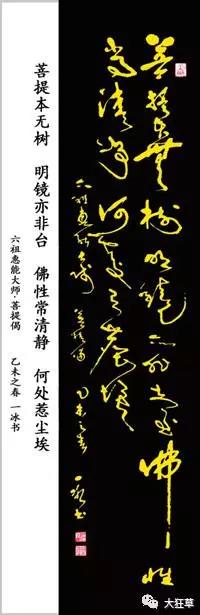 菩提本無樹明鏡亦非臺佛性
常清静何處惹塵埃
六祖惠能大师 菩提偈 乙未之春
一冰书
菩提本无树 明镜亦非台 佛性常清静 何处惹尘埃
六祖惠能大师·菩提偈 乙未之春 一冰书
大狂草